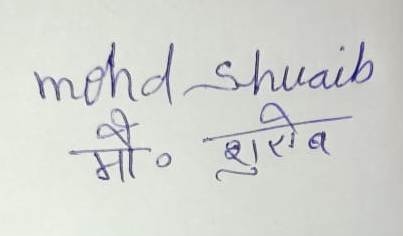 mohd Shuaib
मौ० शुऐब